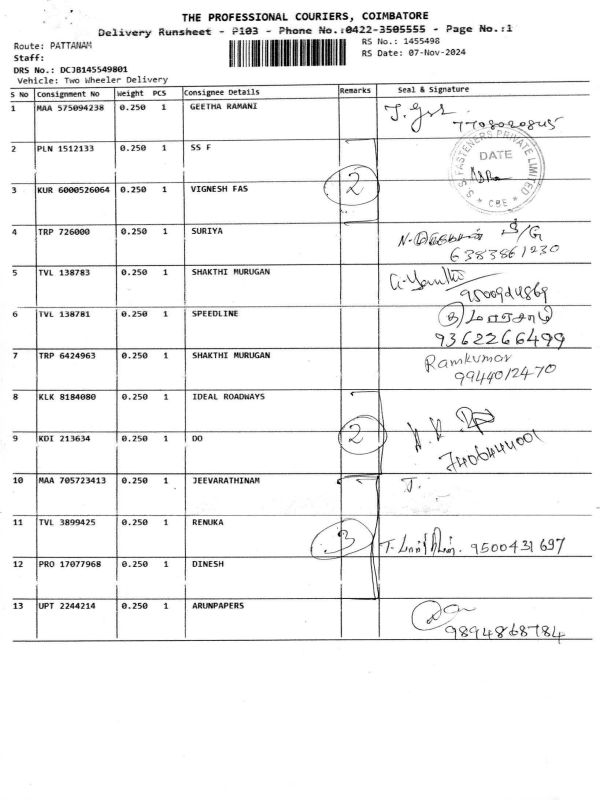 THE PROFESSIONAL COURIERS, COIMBATORE
Delivery Runsheet - P103 - Phone No.:0422-3505555 - Page No.:1
Route: PATTANAM
RS No.: 1455498
Staff:
RS Date: 07-Nov-2024
DRS No.: DCJB145549801
Vehicle: Two Wheeler Delivery
S No Consignment No Weight PCS Consignee Details Remarks Seal & Signature
1 MAA 575094238 0.250 1 GEETHA RAMANI
7708020845
2 PLN 1512133 0.250 1 SS F
S.S. FASTENERS PRIVATE LIMITED
DATE
* CBE *
3 KUR 6000526064 0.250 1 VIGNESH FAS 2
4 TRP 726000 0.250 1 SURIYA S/G
6383861230
5 TVL 138783 0.250 1 SHAKTHI MURUGAN
9500924869
6 TVL 138781 0.250 1 SPEEDLINE
9362266499
7 TRP 6424963 0.250 1 SHAKTHI MURUGAN Ramkumar
9944012470
8 KLK 8184080 0.250 1 IDEAL ROADWAYS
9 KDI 213634 0.250 1 DO 2
7406444001
10 MAA 705723413 0.250 1 JEEVARATHINAM J.
11 TVL 3899425 0.250 1 RENUKA 3 9500431697
12 PRO 17077968 0.250 1 DINESH
13 UPT 2244214 0.250 1 ARUNPAPERS
9894868784